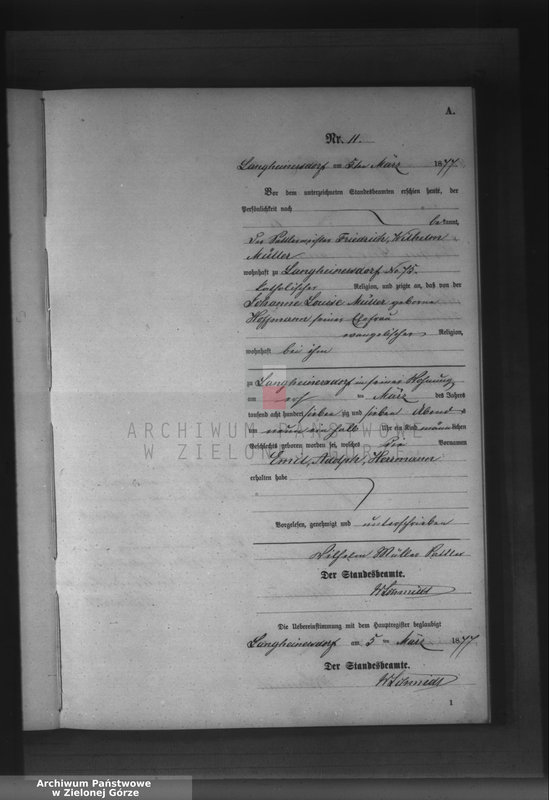 A.
Nr. 11.
Langheinersdorf am 5ten März 1877.
Vor dem unterzeichneten Standesbeamten erschien heute, der
Persönlichkeit nach
bekannt,
Der Sattlermeister Friedrich, Wilhelm
Müller
wohnhaft zu Langheinersdorf No 75.
katholischer Religion, und zeigte an, daß von der
Johanne Louise Müller geborne
Hoffmann seiner Ehefrau
evangelischer Religion,
wohnhaft bei ihm
zu Langheinersdorf in seiner Wohnung
am ten März des Jahres
tausend acht hundert sieben zig und sieben Abends
um neun ein halb Uhr ein Kind männlichen
Geschlechts geboren worden sei, welches die Vornamen
Emil, Adolph, Herrmann
erhalten habe
Vorgelesen, genehmigt und unterschrieben
Wilhelm Müller Sattler
Der Standesbeamte.
WSchmidt
Die Uebereinstimmung mit dem Hauptregister beglaubigt
Langheinersdorf am 5 ten März 1877.
Der Standesbeamte.
WSchmidt
1
ARCHIWUM PAŃSTWOWE
W ZIELONEJ GÓRZE
Archiwum Państwowe
w Zielonej Górze